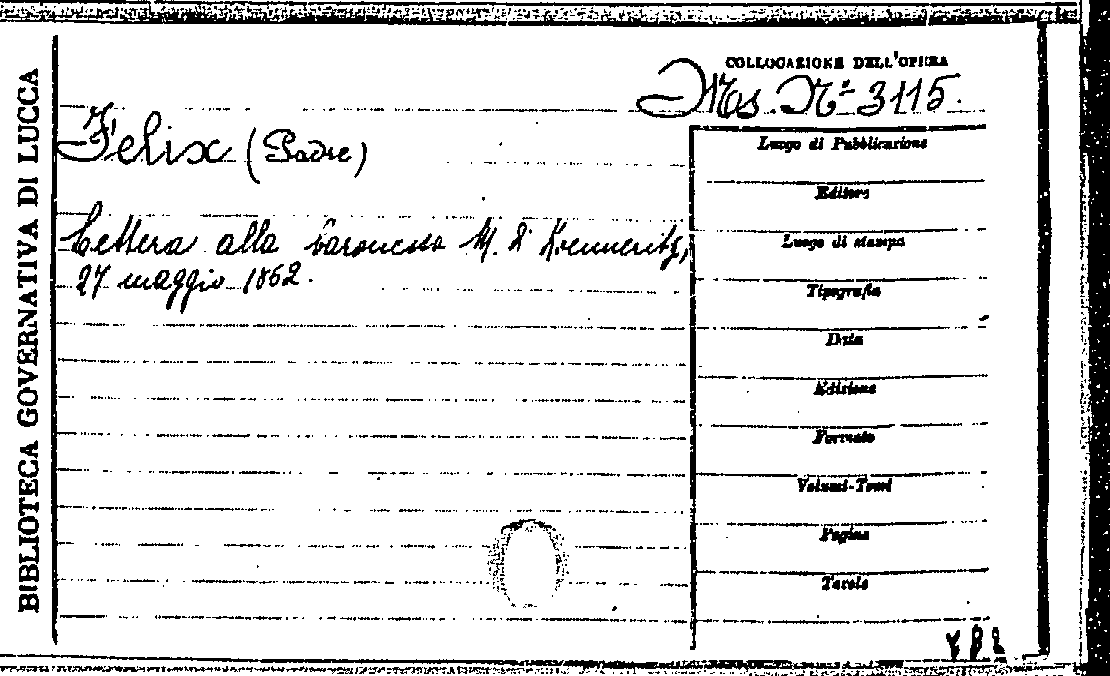 BIBLIOTECA GOVERNATIVA DI LUCCA
COLLOCAZIONE DELL'OPERA
Ms. Nº 3115.
Felix (Padre)
Lettera alla baronessa M. d' Koenneritz,
27 maggio 1862.
Luogo di Pubblicazione
Editore
Luogo di stampa
Tipografia
Data
Edizione
Formato
Volumi-Tomi
Pagine
Tavole